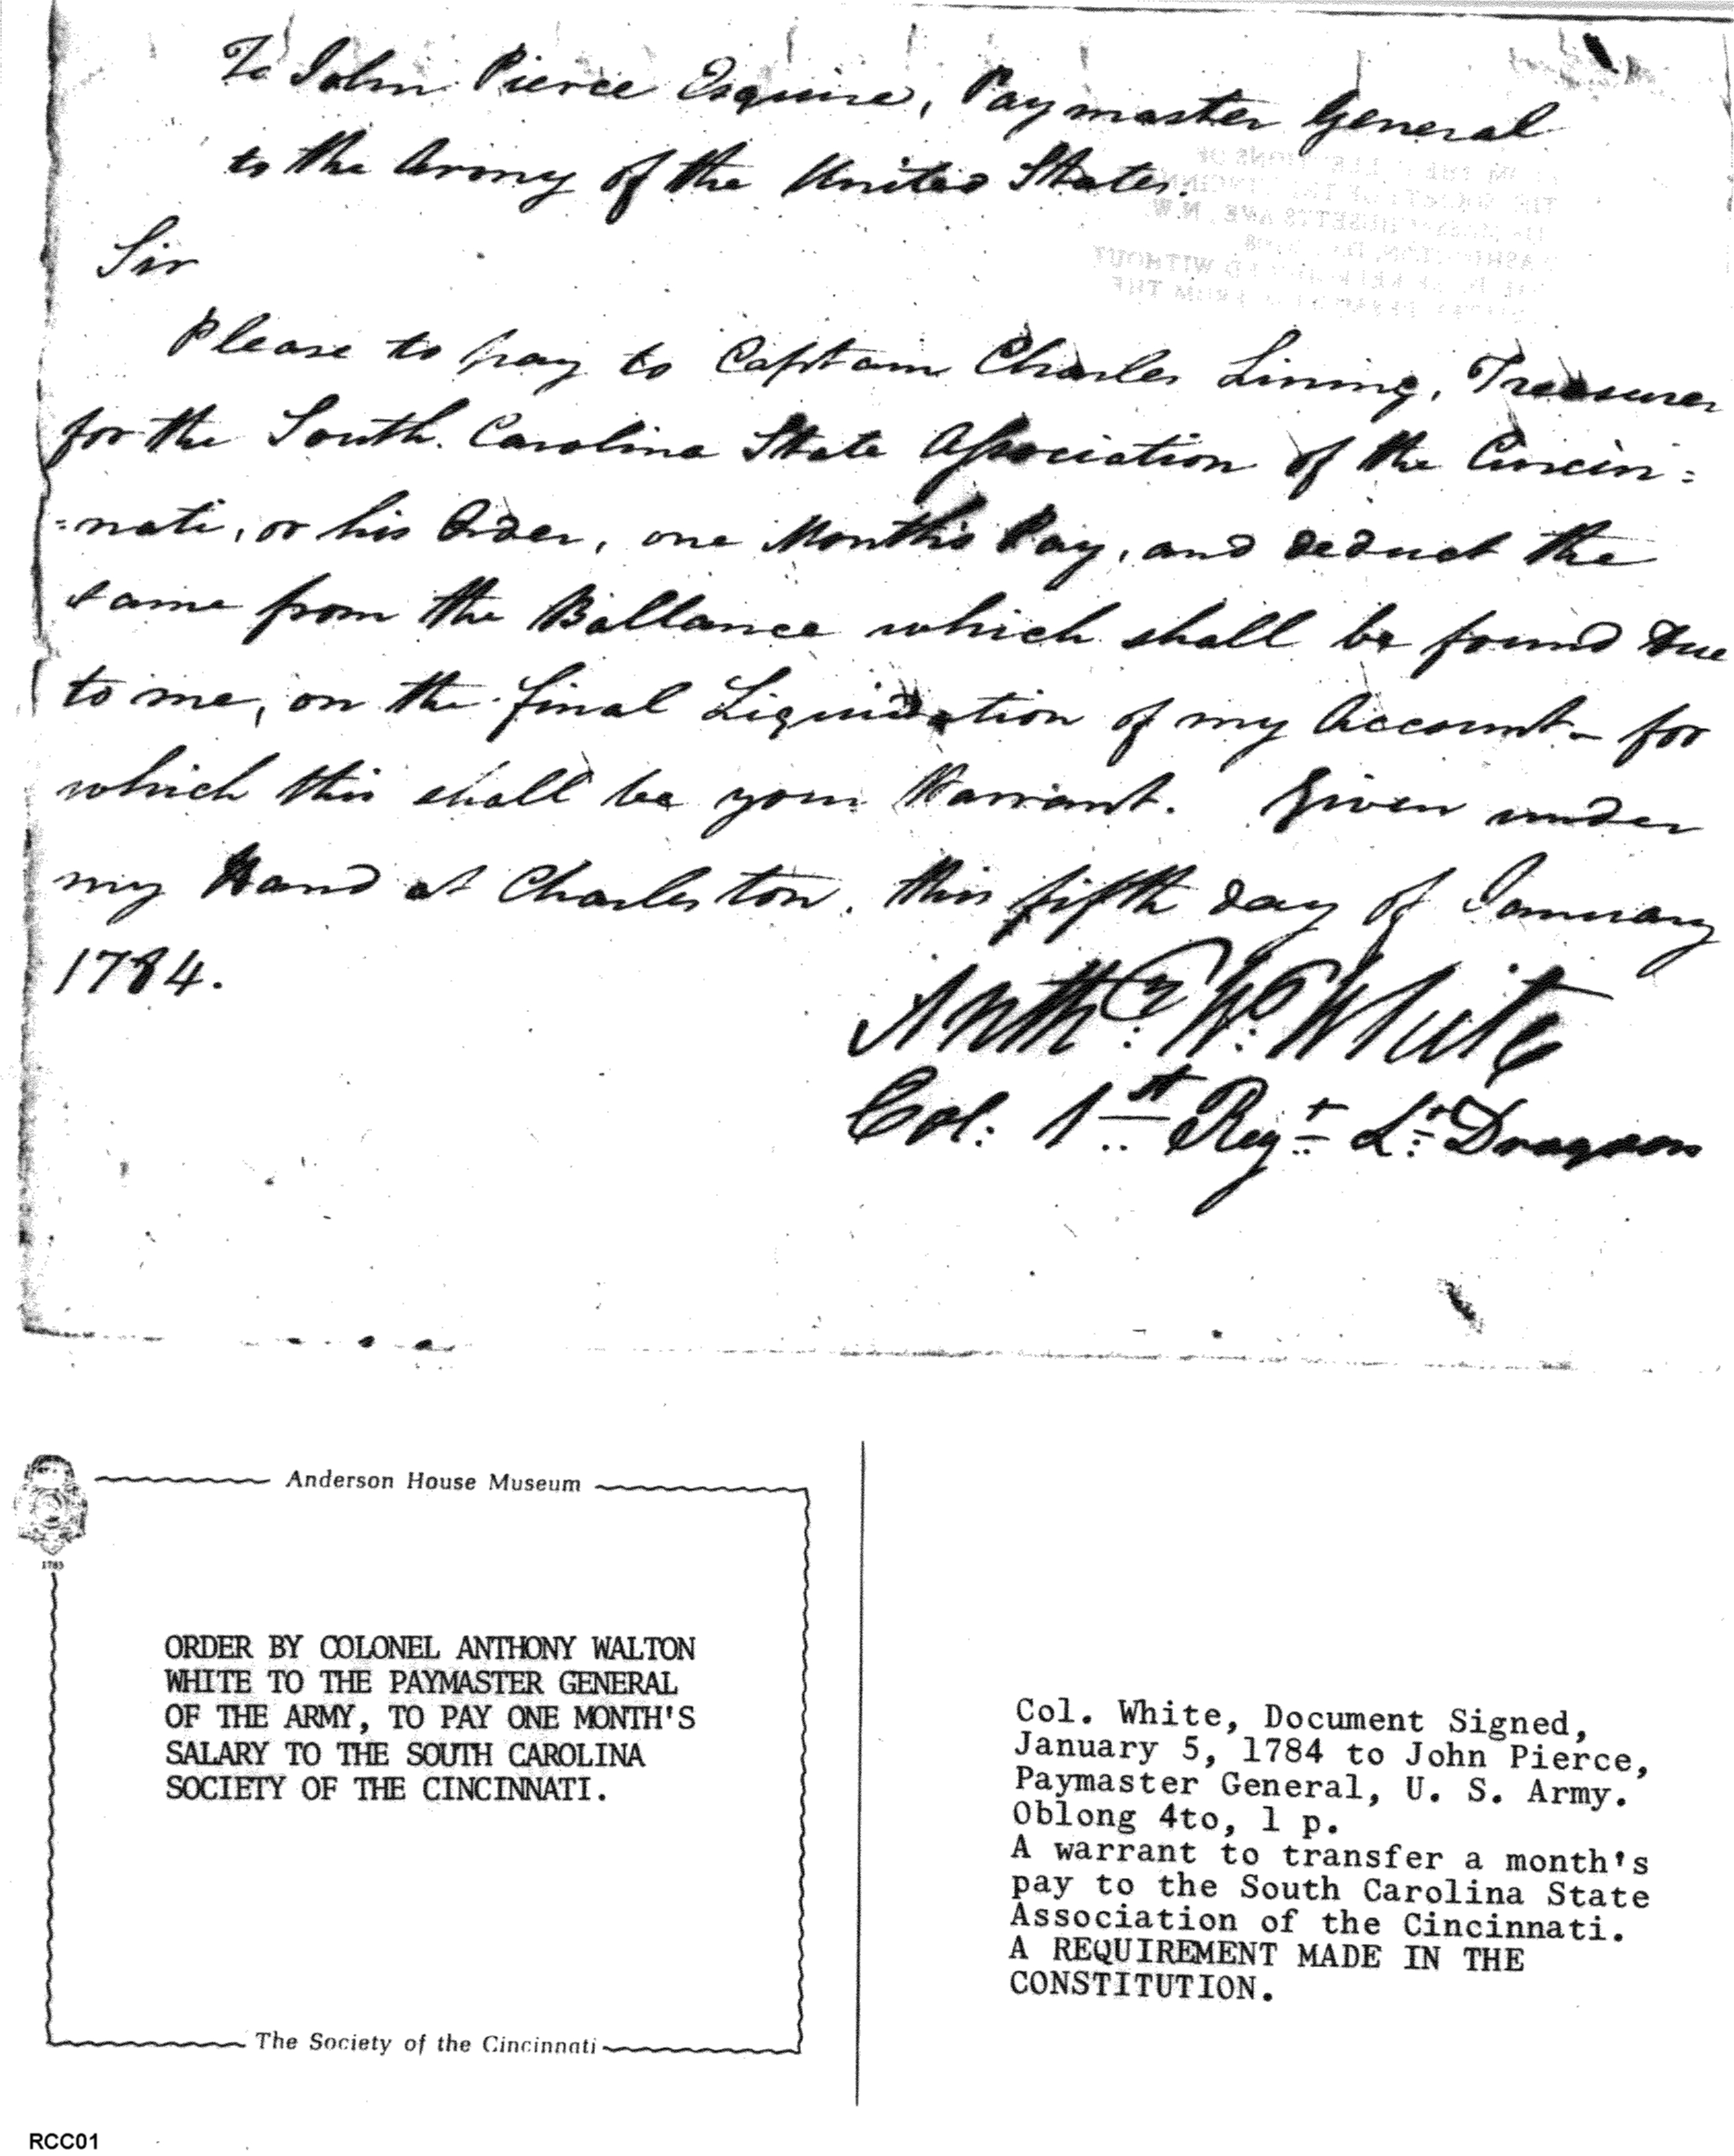 To John Pierce Esquire, Paymaster General
to the Army of the United States.
Sir
Please to pay to Captain Charles Lining, Treasurer
for the South Carolina State Association of the Cincin=
=nati, or his Order, one Month's Pay, and deduct the
same from the Ballance which shall be found due
to me, on the final Liquidation of my Account - for
which this shall be your Warrant. Given under
my Hand at Charleston, this fifth day of January
1784.
Anthy. W. White
Col: 1st Regt Lt Dragoons
Anderson House Museum
1783
ORDER BY COLONEL ANTHONY WALTON
WHITE TO THE PAYMASTER GENERAL
OF THE ARMY, TO PAY ONE MONTH'S
SALARY TO THE SOUTH CAROLINA
SOCIETY OF THE CINCINNATI.
The Society of the Cincinnati
Col. White, Document Signed,
January 5, 1784 to John Pierce,
Paymaster General, U. S. Army.
Oblong 4to, 1 p.
A warrant to transfer a month's
pay to the South Carolina State
Association of the Cincinnati.
A REQUIREMENT MADE IN THE
CONSTITUTION.
RCC01